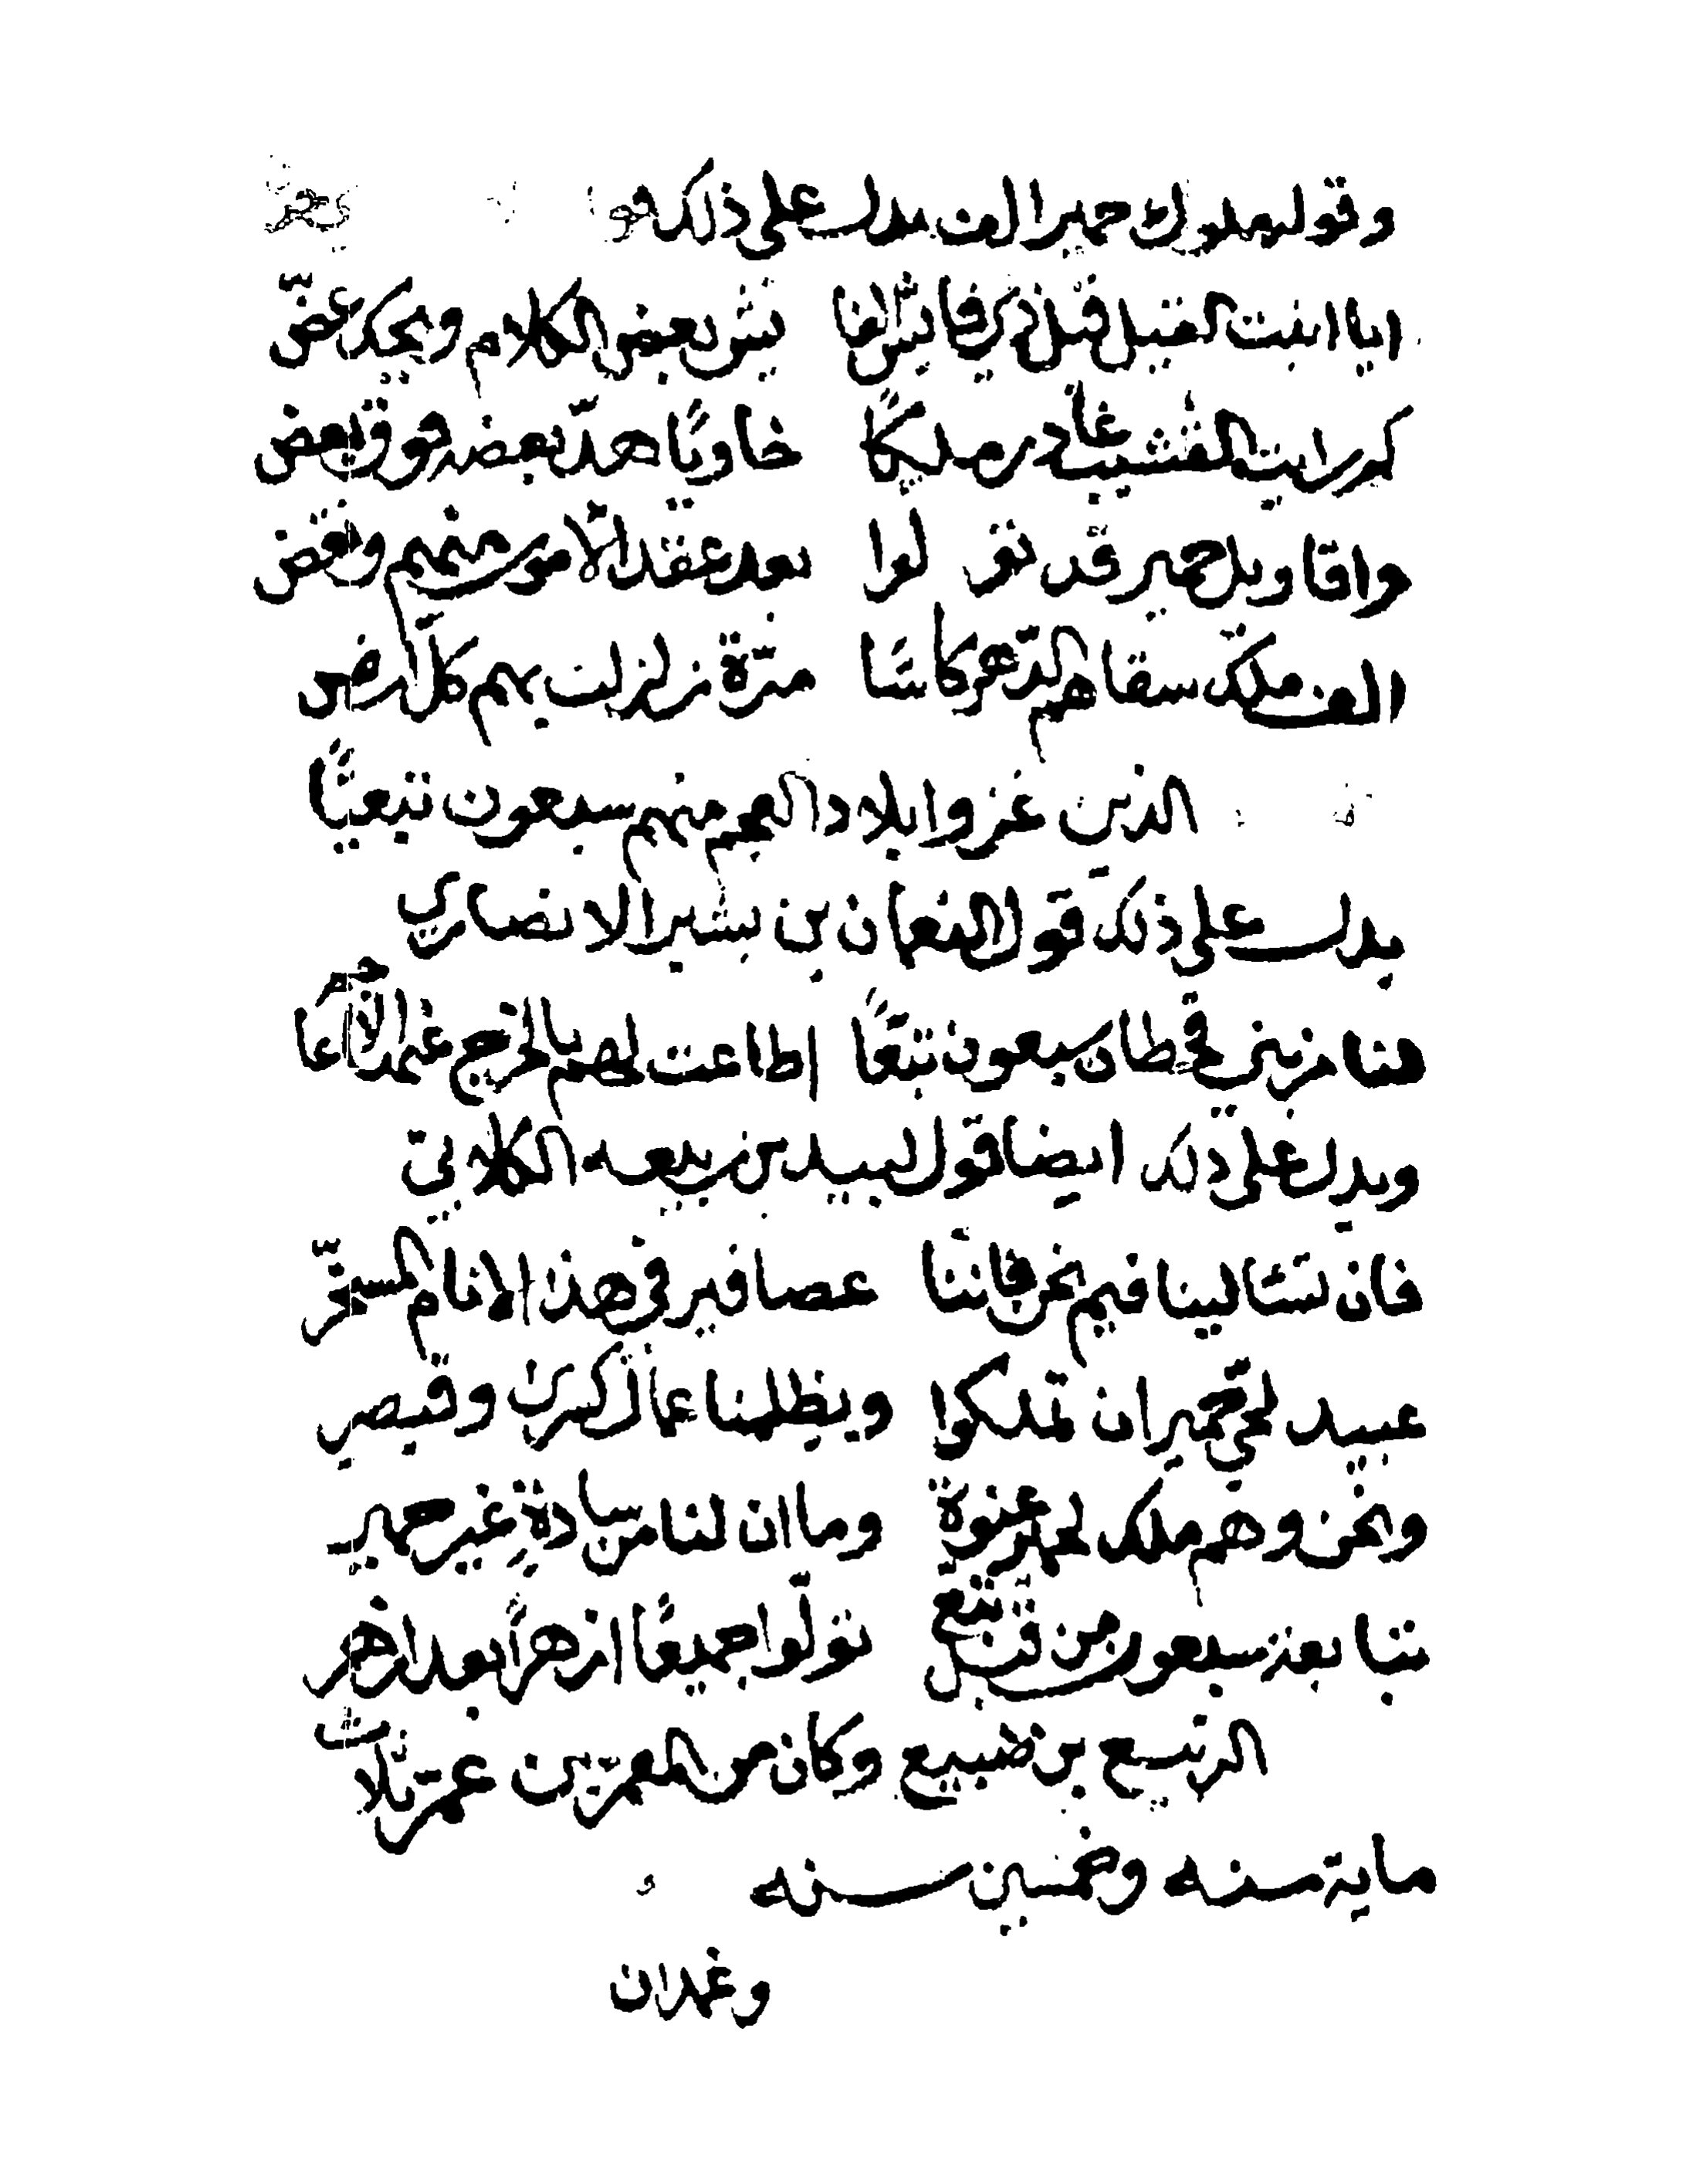 وقوله ملوك حمير الف يدل على ذلك
ايا ابنت القيل قيل ذي فايش لنا يش بعض الكلام ويحك غضّ
كم رايت القشيب غادره ملكًا خاويًا هدّ بعضه فوق بعض
واقاويل حمير قد تولوا بعد عقد الامور منهم ونقض
الف ملك سقاهم الدّهر كاسًا مرّة زلزلت بهم كلّ ارض
الذين غزوا بلاد العجم منهم سبعون تبعيًا
يدل على ذلك قول النعمان بن بشير الانصاري
لنا من بني قحطان سبعون تبّعًا اطاعت لهم بالخرج
ويدل على ذلك ايضا قول لبيد بن ربيعه الكلابي
فان تسئالينا فيم نحن فاننا عصافير في هذا الانام المسحّر
عبيد لحي حمير ان تملكوا ويظلمنا عمال كسرى وقيصر
ونحن وهم ملك لحمير عنوة وما ان لنا من سادةٍ غير حمير
تبابعة سبعون من قبل تبّع تولّوا جميعًا ازهرًا بعد ازهر
الربيع بن ضبيع وكان من المعمرين عمّر ثلاث
ماية سنه وخمسين سنه
وغمدان